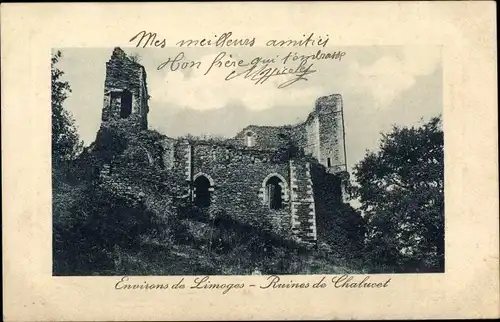 Mes meilleurs amitiés
Mon frère qui t'embrasse
Environs de Limoges - Ruines de Chalucet